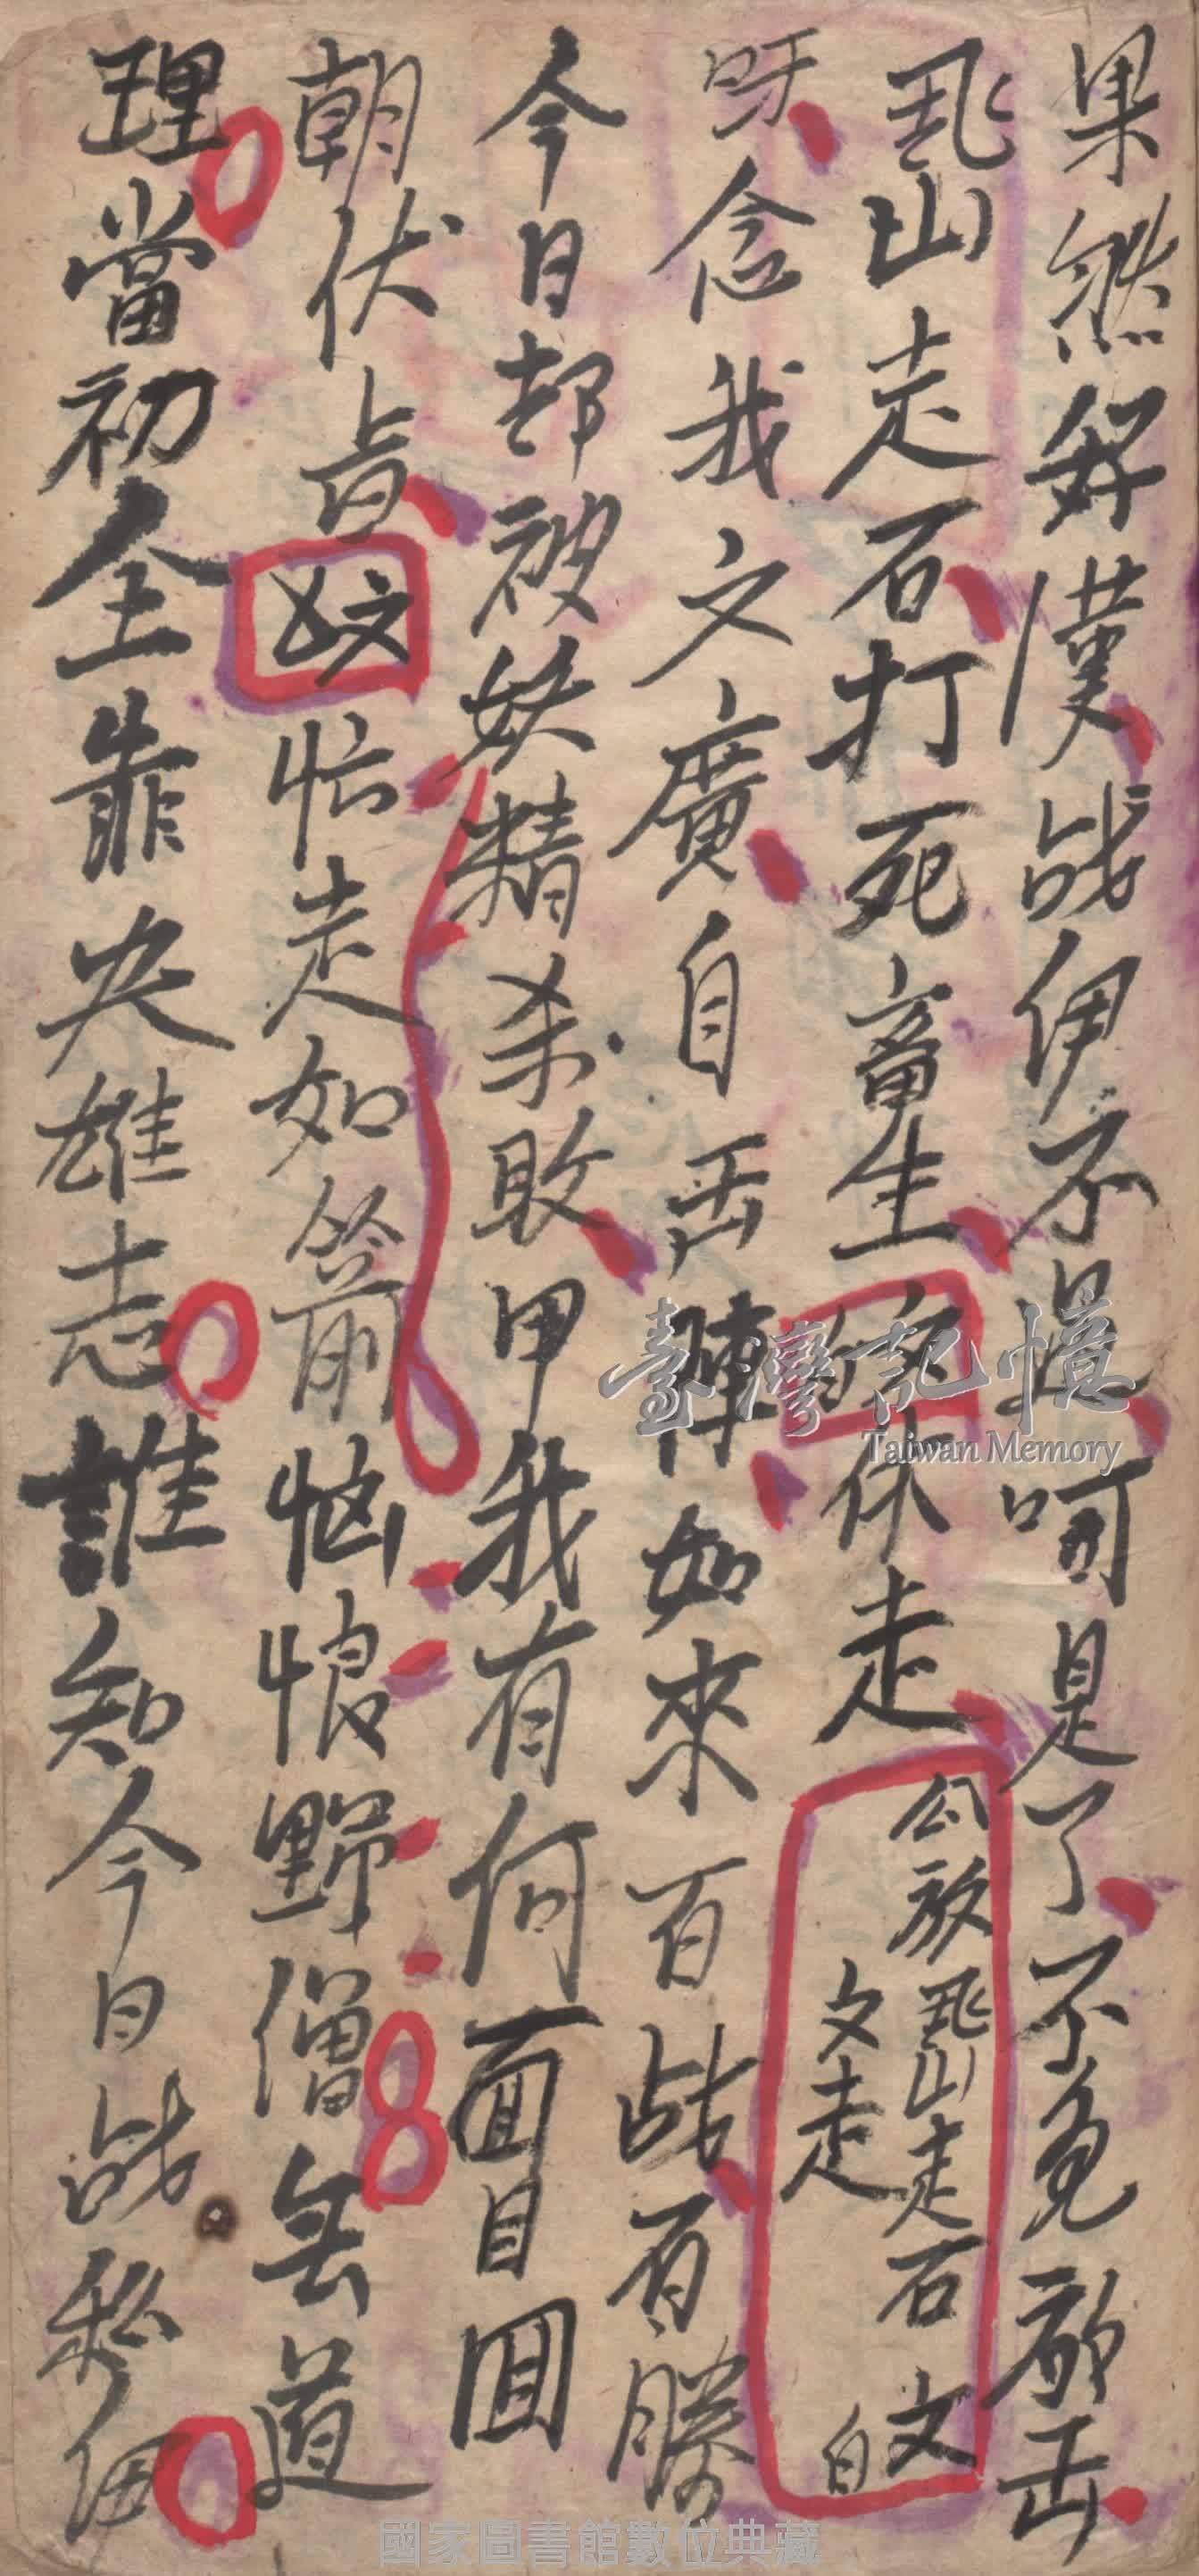 果然好漢战伊不過呵是了不免放出
飛山走石打死畜生休走公放飛山走石
文走
文白
呀念我文廣自出陣如來百战百勝
今日却被妖精杀敗甲我有何面目囬
朝伏旨文忙走如箭恼恨野僧無道
理當初全靠英雄志誰知今日战
臺灣記憶
Taiwan Memory
國家圖書館數位典藏